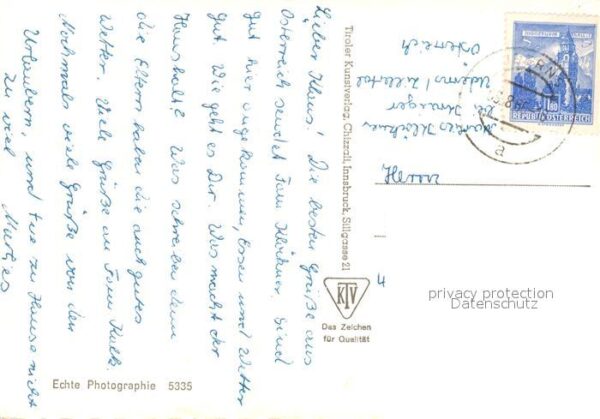 Lieber Klaus! Die besten Grüße aus
Österreich sendet Fam. Klöckner. Sind
gut hier angekommen, Essen und Wetter
gut. Wie geht es Dir. Was macht der
Haushalt? Was schreiben denn
die Eltern haben die auch gutes
Wetter. Viele Grüße an Fam. Kulk.
Nochmals viele Grüße von den
Urlaubern, und tue zu Hause nicht
zu viel
Marlies
Echte Photographie 5335
Tiroler Kunstverlag, Chizzali, Innsbruck, Sillgasse 21
KTV
Das Zeichen
für Qualität
Marlies Klöckner
bei
Uderns / Zillertal
Österreich
Herrn
REPUBLIK ÖSTERREICH
a
privacy protection
Datenschutz